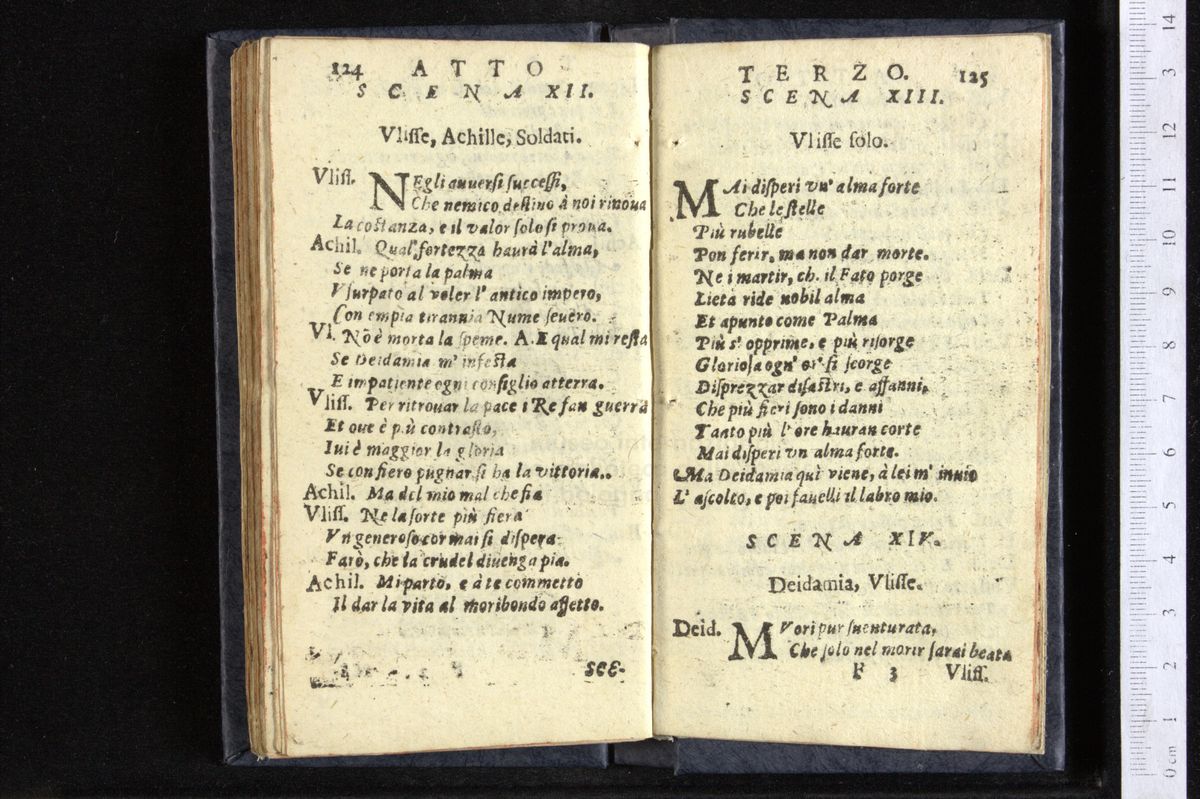 124 ATTO
SCENA XII.
Vlisse, Achille, Soldati.
Vliss. NEgli auuersi successi,
Che nemico destino à noi rinoua
La costanza, e il valor solo si proua.
Achil. Qual' fortezza haurà l'alma,
Se ne porta la palma
Vsurpato al voler l'antico impero,
Con empia tirannia Nume seuero.
Vl. Nõ è morta la speme. A. E qual mi resta
Se Deidamia m'infesta
E impatiente ogni consiglio atterra.
Vliss. Per ritrouar la pace i Re fan guerra
Et oue è più contrasto,
Iui è maggior la gloria
Se con fiero pugnar si ha la vittoria.
Achil. Ma del mio mal che fia
Vliss. Ne la sorte più fiera
Vn generoso cor mai si dispera
Farò, che la crudel diuenga pia.
Achil. Mi parto, e à te commetto
Il dar la vita al moribondo affetto.
SCE-
TERZO. 125
SCENA XIII.
Vlisse solo.
MAi disperi vn' alma forte
Che le stelle
Più rubelle
Pon ferir, ma non dar morte.
Ne i martir, ch. il Fato porge
Lieta ride nobil alma
Et apunto come Palma
Più s' opprime, e più risorge
Gloriosa ogn' or si scorge
Disprezzar disastri, e affanni,
Che più fieri sono i danni
Tanto più l'ore hauran corte
Mai disperi vn alma forte.
Ma Deidamia quì viene, à lei m' inuio
L' ascolto, e poi fauelli il labro mio.
SCENA XIV.
Deidamia, Vlisse.
Deid. MVori pur suenturata,
Che solo nel morir sarai beata
F 3 Vliss.
14
13
12
11
10
9
8
7
6
5
4
3
2
1
0 cm